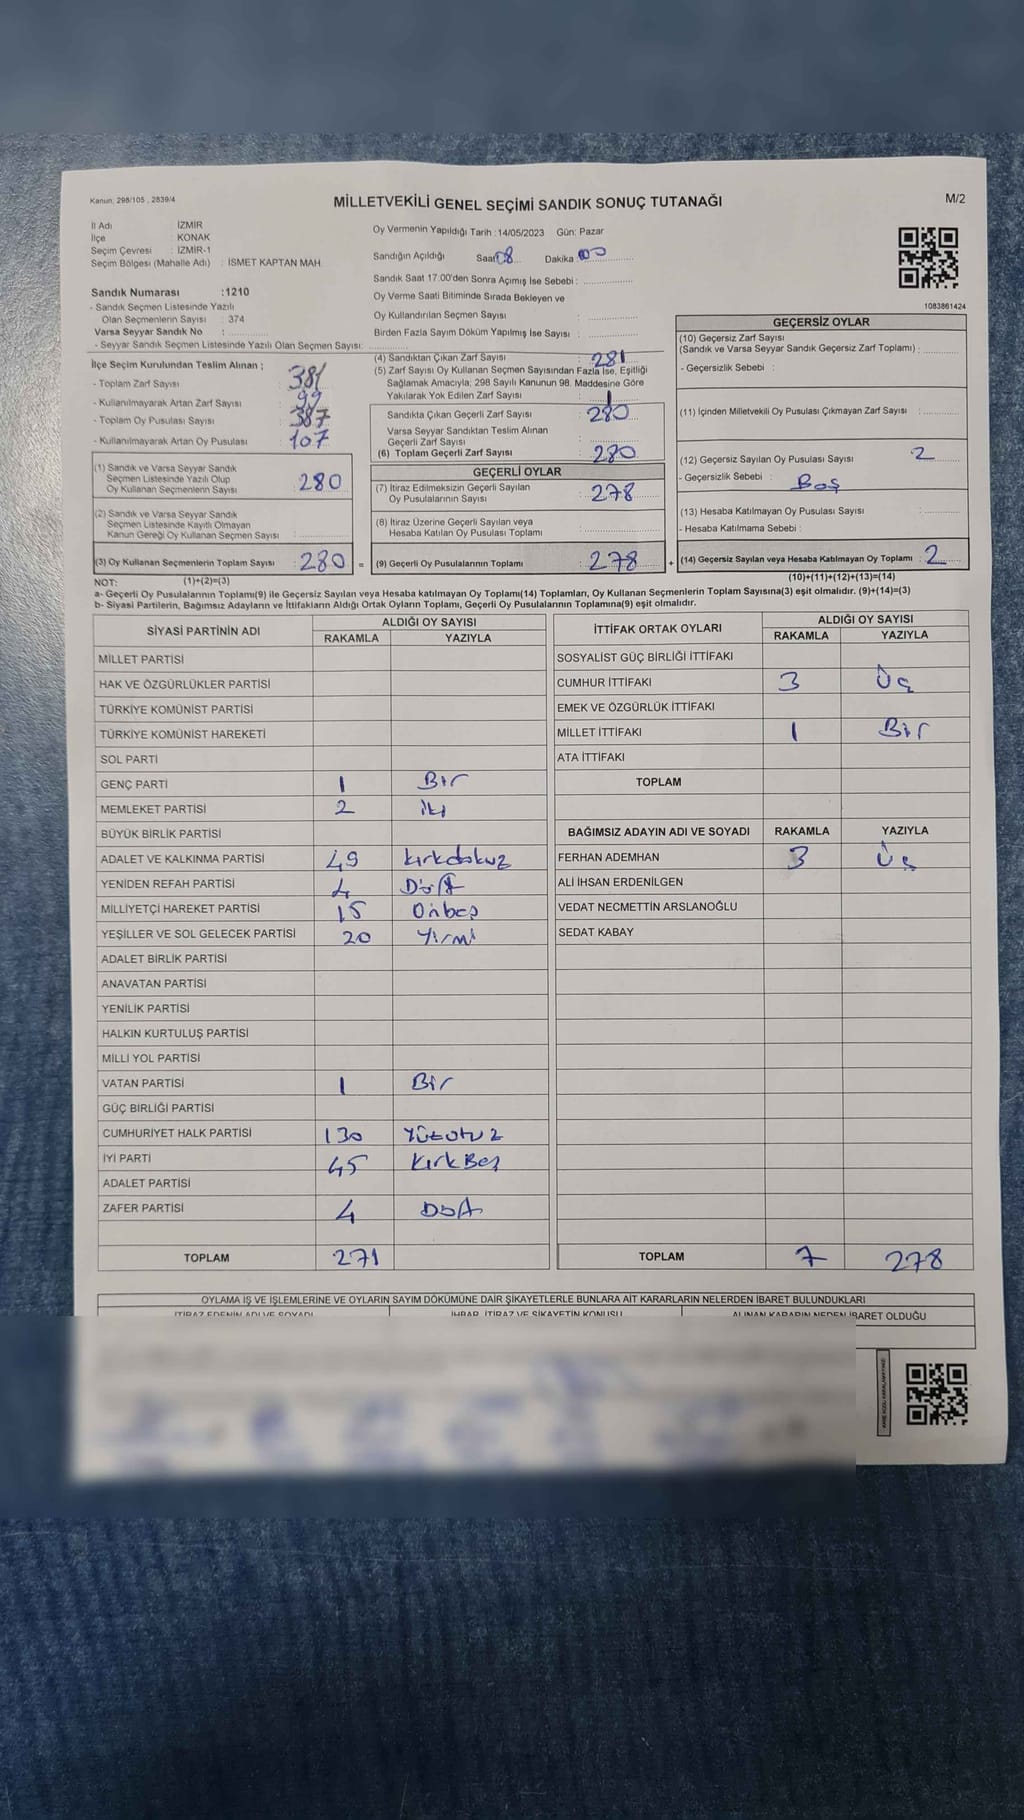 Kanun: 298/105 , 2839/4
MİLLETVEKİLİ GENEL SEÇİMİ SANDIK SONUÇ TUTANAĞI
M/2
İl Adı : İZMİR
İlçe : KONAK
Seçim Çevresi : İZMİR-1
Seçim Bölgesi (Mahalle Adı) : İSMET KAPTAN MAH.
Sandık Numarası :1210
- Sandık Seçmen Listesinde Yazılı
Olan Seçmenlerin Sayısı : 374
Varsa Seyyar Sandık No :
- Seyyar Sandık Seçmen Listesinde Yazılı Olan Seçmen Sayısı:
Oy Vermenin Yapıldığı Tarih :14/05/2023 Gün: Pazar
Sandığın Açıldığı Saat 08 Dakika 00
Sandık Saat 17:00'den Sonra Açımış İse Sebebi :
Oy Verme Saati Bitiminde Sırada Bekleyen ve
Oy Kullandırılan Seçmen Sayısı :
Birden Fazla Sayım Döküm Yapılmış İse Sayısı :
1083861424
İlçe Seçim Kurulundan Teslim Alınan ;
- Toplam Zarf Sayısı : 381
- Kullanılmayarak Artan Zarf Sayısı : 99
- Toplam Oy Pusulası Sayısı : 387
- Kullanılmayarak Artan Oy Pusulası : 107
(1) Sandık ve Varsa Seyyar Sandık
Seçmen Listesinde Yazılı Olup
Oy Kullanan Seçmenlerin Sayısı : 280
(2) Sandık ve Varsa Seyyar Sandık
Seçmen Listesinde Kayıtlı Olmayan
Kanun Gereği Oy Kullanan Seçmen Sayısı :
(3) Oy Kullanan Seçmenlerin Toplam Sayısı : 280 =
(4) Sandıktan Çıkan Zarf Sayısı : 281
(5) Zarf Sayısı Oy Kullanan Seçmen Sayısından Fazla İse, Eşitliği
Sağlamak Amacıyla; 298 Sayılı Kanunun 98. Maddesine Göre
Yakılarak Yok Edilen Zarf Sayısı : 1
Sandıkta Çıkan Geçerli Zarf Sayısı : 280
Varsa Seyyar Sandıktan Teslim Alınan
Geçerli Zarf Sayısı :
(6) Toplam Geçerli Zarf Sayısı : 280
GEÇERLİ OYLAR
(7) İtiraz Edilmeksizin Geçerli Sayılan
Oy Pusulalarının Sayısı : 278
(8) İtiraz Üzerine Geçerli Sayılan veya
Hesaba Katılan Oy Pusulası Toplamı :
(9) Geçerli Oy Pusulalarının Toplamı : 278 +
GEÇERSİZ OYLAR
(10) Geçersiz Zarf Sayısı
(Sandık ve Varsa Seyyar Sandık Geçersiz Zarf Toplamı) :
- Geçersizlik Sebebi :
(11) İçinden Milletvekili Oy Pusulası Çıkmayan Zarf Sayısı :
(12) Geçersiz Sayılan Oy Pusulası Sayısı : 2
- Geçersizlik Sebebi : Boş
(13) Hesaba Katılmayan Oy Pusulası Sayısı :
- Hesaba Katılmama Sebebi :
(14) Geçersiz Sayılan veya Hesaba Katılmayan Oy Toplamı : 2
NOT: (1)+(2)=(3) (10)+(11)+(12)+(13)=(14)
a- Geçerli Oy Pusulalarının Toplamı(9) ile Geçersiz Sayılan veya Hesaba katılmayan Oy Toplamı(14) Toplamları, Oy Kullanan Seçmenlerin Toplam Sayısına(3) eşit olmalıdır. (9)+(14)=(3)
b- Siyasi Partilerin, Bağımsız Adayların ve İttifakların Aldığı Ortak Oyların Toplamı, Geçerli Oy Pusulalarının Toplamına(9) eşit olmalıdır.
SİYASİ PARTİNİN ADI ALDIĞI OY SAYISI
RAKAMLA YAZIYLA
MİLLET PARTİSİ
HAK VE ÖZGÜRLÜKLER PARTİSİ
TÜRKİYE KOMÜNİST PARTİSİ
TÜRKİYE KOMÜNİST HAREKETİ
SOL PARTİ
GENÇ PARTİ 1 Bir
MEMLEKET PARTİSİ 2 iki
BÜYÜK BİRLİK PARTİSİ
ADALET VE KALKINMA PARTİSİ 49 kırkdokuz
YENİDEN REFAH PARTİSİ 4 Dört
MİLLİYETÇİ HAREKET PARTİSİ 15 Onbeş
YEŞİLLER VE SOL GELECEK PARTİSİ 20 Yirmi
ADALET BİRLİK PARTİSİ
ANAVATAN PARTİSİ
YENİLİK PARTİSİ
HALKIN KURTULUŞ PARTİSİ
MİLLİ YOL PARTİSİ
VATAN PARTİSİ 1 Bir
GÜÇ BİRLİĞİ PARTİSİ
CUMHURİYET HALK PARTİSİ 130 Yüzotuz
İYİ PARTİ 45 KırkBeş
ADALET PARTİSİ
ZAFER PARTİSİ 4 Dört
TOPLAM 271
İTTİFAK ORTAK OYLARI ALDIĞI OY SAYISI
RAKAMLA YAZIYLA
SOSYALİST GÜÇ BİRLİĞİ İTTİFAKI
CUMHUR İTTİFAKI 3 Üç
EMEK VE ÖZGÜRLÜK İTTİFAKI
MİLLET İTTİFAKI 1 Bir
ATA İTTİFAKI
TOPLAM
BAĞIMSIZ ADAYIN ADI VE SOYADI RAKAMLA YAZIYLA
FERHAN ADEMHAN 3 Üç
ALİ İHSAN ERDENİLGEN
VEDAT NECMETTİN ARSLANOĞLU
SEDAT KABAY
TOPLAM 7 278
OYLAMA İŞ VE İŞLEMLERİNE VE OYLARIN SAYIM DÖKÜMÜNE DAİR ŞİKAYETLERLE BUNLARA AİT KARARLARIN NELERDEN İBARET BULUNDUKLARI
İTİRAZ EDENİN ADI VE SOYADI İHBAR, İTİRAZ VE ŞİKAYETİN KONUSU ALINAN KARARIN NEDEN İBARET OLDUĞU